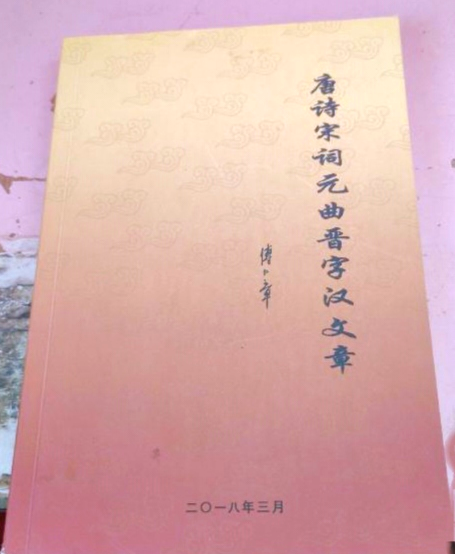 唐诗宋词元曲晋字汉文章
二〇一八年三月